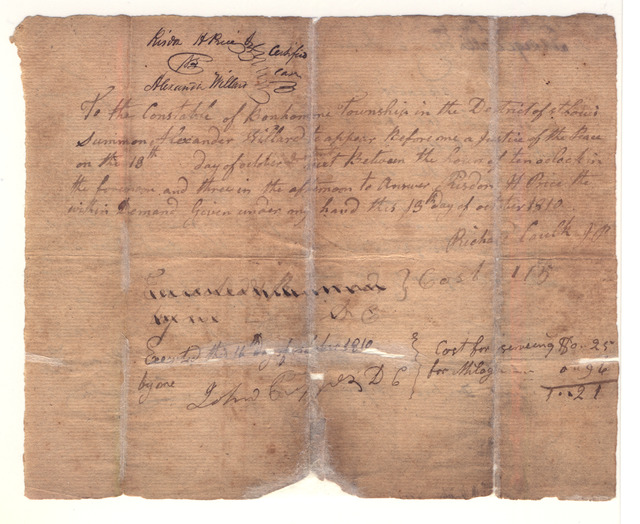 Risdon H Price
vs
Alexander Willard
Certified
Case
To the Constable of Bonhomme Township in the District of St Louis
Summon Alexander Willard to appear Before me a Justice of the Peace
on the 18th day of october Next Between the hour of ten oclock in
the forenoon and three in the afternoon to Answer Risdon H Price the
within Demand Given under my hand this 13th day of october 1810
Richard Caulk J P
Cost 115
Executed this 16th Day of october 1810
by me
John D C
Cost for serveing $0 - 25
for Milage 0 - 96
1 - 21